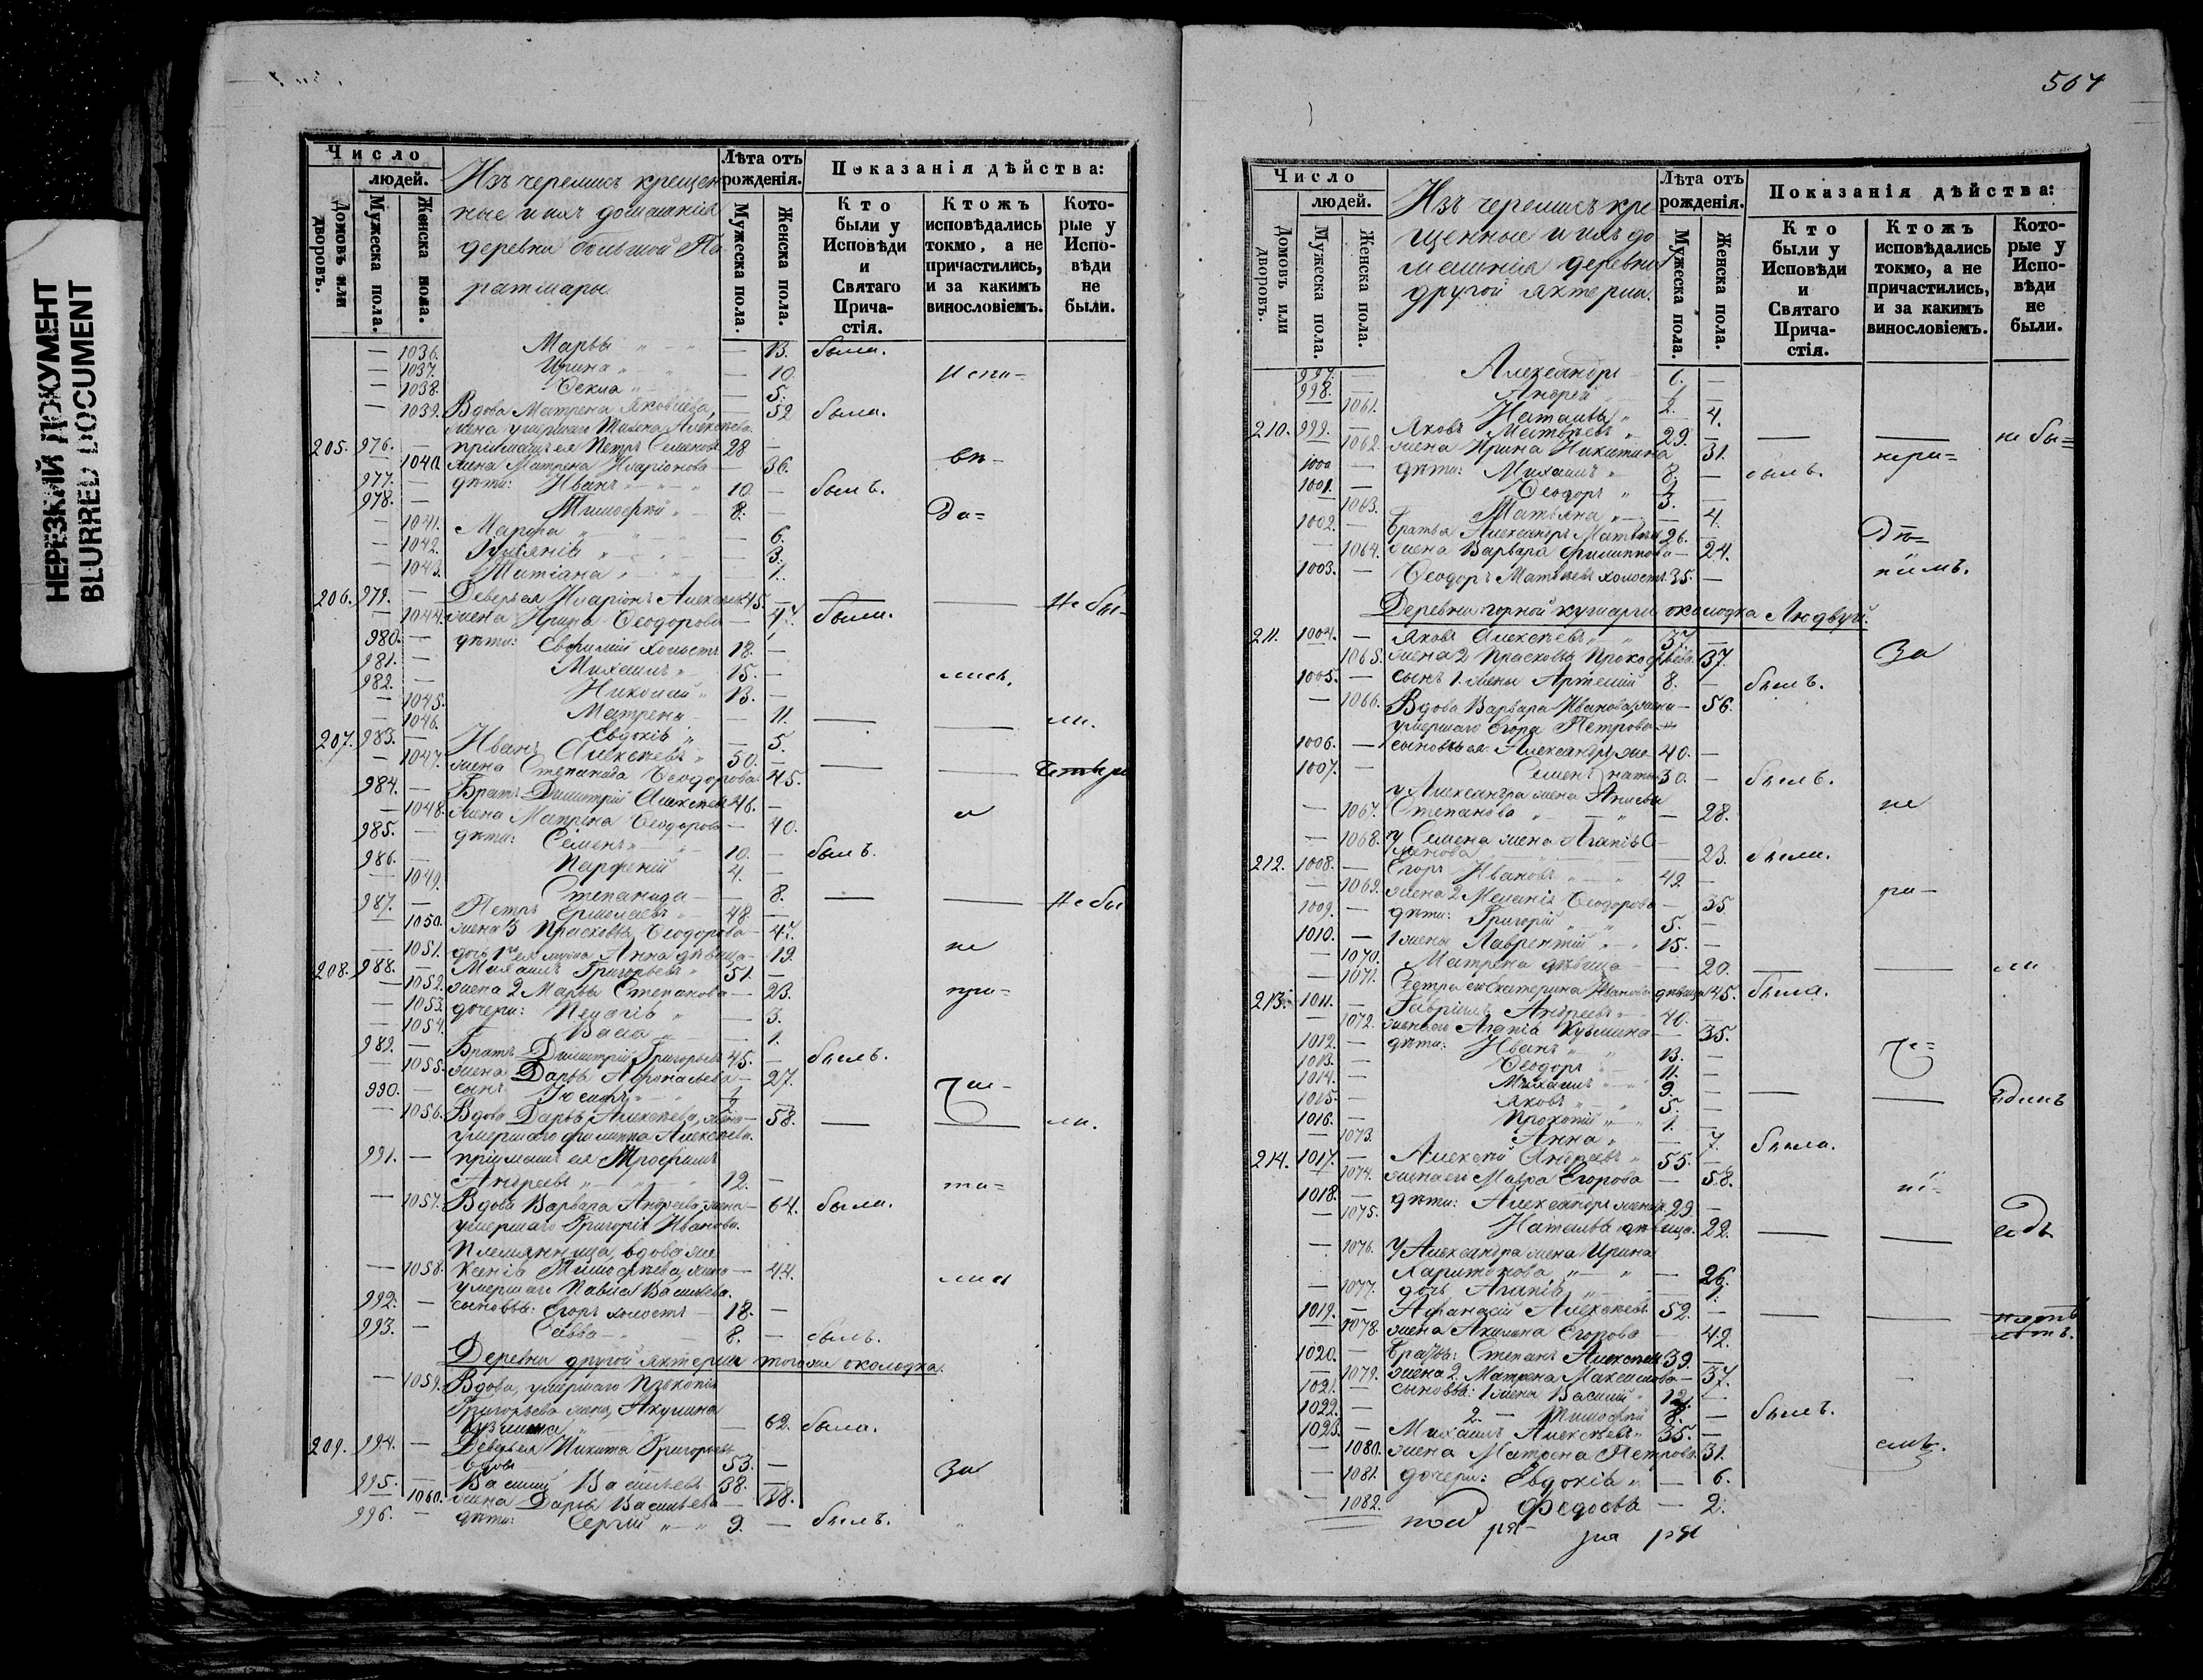 НЕРЕЗКИЙ ДОКУМЕНТ
BLURRED DOCUMENT
Число
людей.
Домовъ или дворовъ.
Мужеска пола.
Женска пола.
Изъ черемисъ крещен
ные и ихъ домашнія
деревни большой Па
ратмары
Лѣта отъ рожденія.
Мужеска пола.
Женска пола.
Показанія дѣйства:
Кто были у Исповѣди и Святаго Прича- стія.
Ктожъ исповѣдались токмо, а не причастились, и за какимъ винословіемъ.
Кото- рые у Испо- вѣди не были.
— 1036. Марѳа — 13. была.
— 1037. Ирина — 10. испо-
— 1038. Ѳекла — 5.
— 1039. Вдова Матрена Яковлева, — 52 была.
жена умершаго Алексѣева
205. 976. — пріимышъ ея Петръ Семеновъ 28 —
— 1040 жена Матрена Иларіонова — 36. вѣ-
977. — дѣти: Иванъ 10 — былъ.
978. — Тимоѳей 8. — да-
— 1041. Марѳа — 6.
— 1042. — 3.
— 1043. Татіана — 1.
206. 979. — Деверь ея Иларіонъ Алексѣевъ 45. — Не бы-
— 1044. жена Ирина Ѳеодорова — 47. были.
980. — дѣти: Евфимій холостъ 18. —
981. — Михаилъ 15. — лись.
982. — Николай 13. —
— 1045. Матрена — 11.
— 1046. Евдокія — 5. ли.
207. 983. — Иванъ Алексѣевъ 50. —
— 1047. жена Степанида Ѳеодорова 45.
984. — Братъ Димитрій Алексѣевъ 46. —
— 1048. жена Матрена Ѳеодорова — 40. а
985. — дѣти: Семенъ 10. — былъ.
986. — Парфеній 4. —
— 1049. Степанида — 8.
987. — Петръ Ермолаевъ 48 — Не бы
— 1050. жена 3 Прасковья Ѳеодорова — 47.
— 1051. дочь 1го ея мужа Анна дѣвица — 19. не
208. 988. — Михаилъ Григорьевъ 51. —
— 1052. жена 2 Марѳа Степанова — 23. при-
— 1053. дочери: Пелагія — 3.
— 1054. Васса — 1.
989. — Братъ Димитрій Григорьевъ 45. — былъ.
— 1055. жена Дарья Аѳанасьева — 27.
990. — сынъ Іосифъ ча-
— 1056. Вдова Дарья Алексѣева, жена — 58. ли.
умершаго Филиппа Алексѣева.
991. — пріимышъ ея Трофимъ
Андреевъ 12. — сти-
— 1057. Вдова Варвара Андреева, жена — 64. были.
умершаго Григорія Иванова.
Племянница, вдова же
— 1058. Ксенія Тимоѳеева, жена — 44. лись
умершаго Павла Васильева.
992. — сыновья: Егоръ холостъ 18. —
993. — Савва 8. — былъ.
Деревни другой Яктерли тогоже околодка.
— 1059. Вдова, умершаго Прокопія
Григорьева жена, Акулина
Кузьмина — 62. была.
209. 994. — Деверь ея Никита Григорьевъ
вдовъ 53. —
995. — Василій Васильевъ 38. — за
— 1060. жена Дарья Васильева — 38.
996. — дѣти: Сергій 9. — былъ.
567
Число
людей.
Домовъ или дворовъ.
Мужеска пола.
Женска пола.
Изъ черемисъ кре
щенные и ихъ до
машнія деревни
другой Яктерли.
Лѣта отъ рожденія.
Мужеска пола.
Женска пола.
Показанія дѣйства:
Кто были у Исповѣди и Святаго Прича- стія.
Ктожъ исповѣдались токмо, а не причастились, и за какимъ винословіемъ.
Кото- рые у Испо- вѣди не были.
997. — Александръ 6. —
998. — Андрей —
— 1061. Наталья 4.
210. 999. — Яковъ Матвѣевъ 29. — не бы=
— 1062 жена Ирина Никитина 31. нера-
1000 — дѣти: Михаилъ 8. — былъ.
1001. — Ѳеодоръ —
— 1063. Татьяна — 4.
1002. — Братья Александръ Матвѣевъ 26. — дѣ=
— 1064. жена Варвара Филиппова — 24.
1003. — Ѳеодоръ Матвѣевъ холостъ 35. — ніемъ.
Деревни горной кушерги околодка Людвуй.
211. 1004. — Яковъ Алексѣевъ 37. —
1065. жена 2 Прасковья Прокофьева 37. За
1005. — сынъ 1. жены Артемій 8. — былъ.
— 1066. Вдова Варвара Иванова, жена — 56.
умершаго Егора Петрова
1006. — сыновья ея Александръ же- 40. —
1007. — Семенъ наты 30. — былъ.
у Александра жена Анисья
— 1067. Степанова — 28. не
— 1068. у Семена жена Агапія
— 23. были.
212. 1008. — Егоръ Ивановъ 49. —
— 1069. жена 2 Меланія Ѳеодорова — 35 ра-
1009. — дѣти: Григорій 5. —
1010. — 1 жены Лаврентій 15. —
— 1070. Матрена дѣвица — 20. ли
— 1071. Сестра ея Екатерина Иванова дѣвица 45. была.
213. 1011. — Гавріилъ Андреевъ 40. —
— 1072. жена его Агапія Кузьмина — 35.
1012. — дѣти: Иванъ 13. —
1013. — Ѳеодоръ 11. —
1014. — Михаилъ 9. —
1015. — Яковъ 5. —
1016. — Прокопій 1. —
— 1073. Анна — 7. была.
214. 1017. — Алексѣй Андреевъ 55. —
— 1074. жена его Мавра Егорова — 58.
1018. — дѣти: Александръ женатъ 29. — ні-
— 1075. Наталья дѣвица. 22.
— 1076. у Александра жена Ирина
Харитонова — 26.
— 1077. дочь Агапія
1019. — Аѳанасій Алексѣевъ 52. —
— 1078. жена Акилина Егорова — 42.
1020. — братъ: Степанъ Алексѣевъ 39. —
— 1079. жена 2. Матрена Максимова — 37.
1021. — сыновья: 1 жены Василій 12. —
1022. — 2. — Тимоѳей 8. — былъ.
1023. — Михаилъ Алексѣевъ 35. —
— 1080. жена Матрена Петрова 31. емъ.
— 1081. дочери: Евдокія — 6.
— 1082. Федосья — 2.